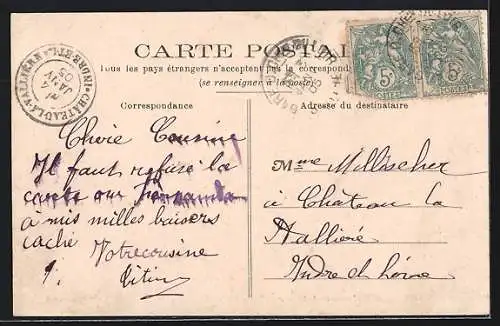 CARTE POSTALE
Tous les pays étrangers n'acceptent pas la correspondance
(se renseigner à la poste)
Correspondance
Adresse du destinataire
CHATEAU-LA-VALLIÈRE
INDRE-ET-
JANV
05
5c
POSTES
5c
POSTES
Chere Cousine
Il faut refusé la
carte our
à mis milles baisers
caché
Votre cousine
Titine
Mme Millischer
à Château la
Vallière
Indre et Loire